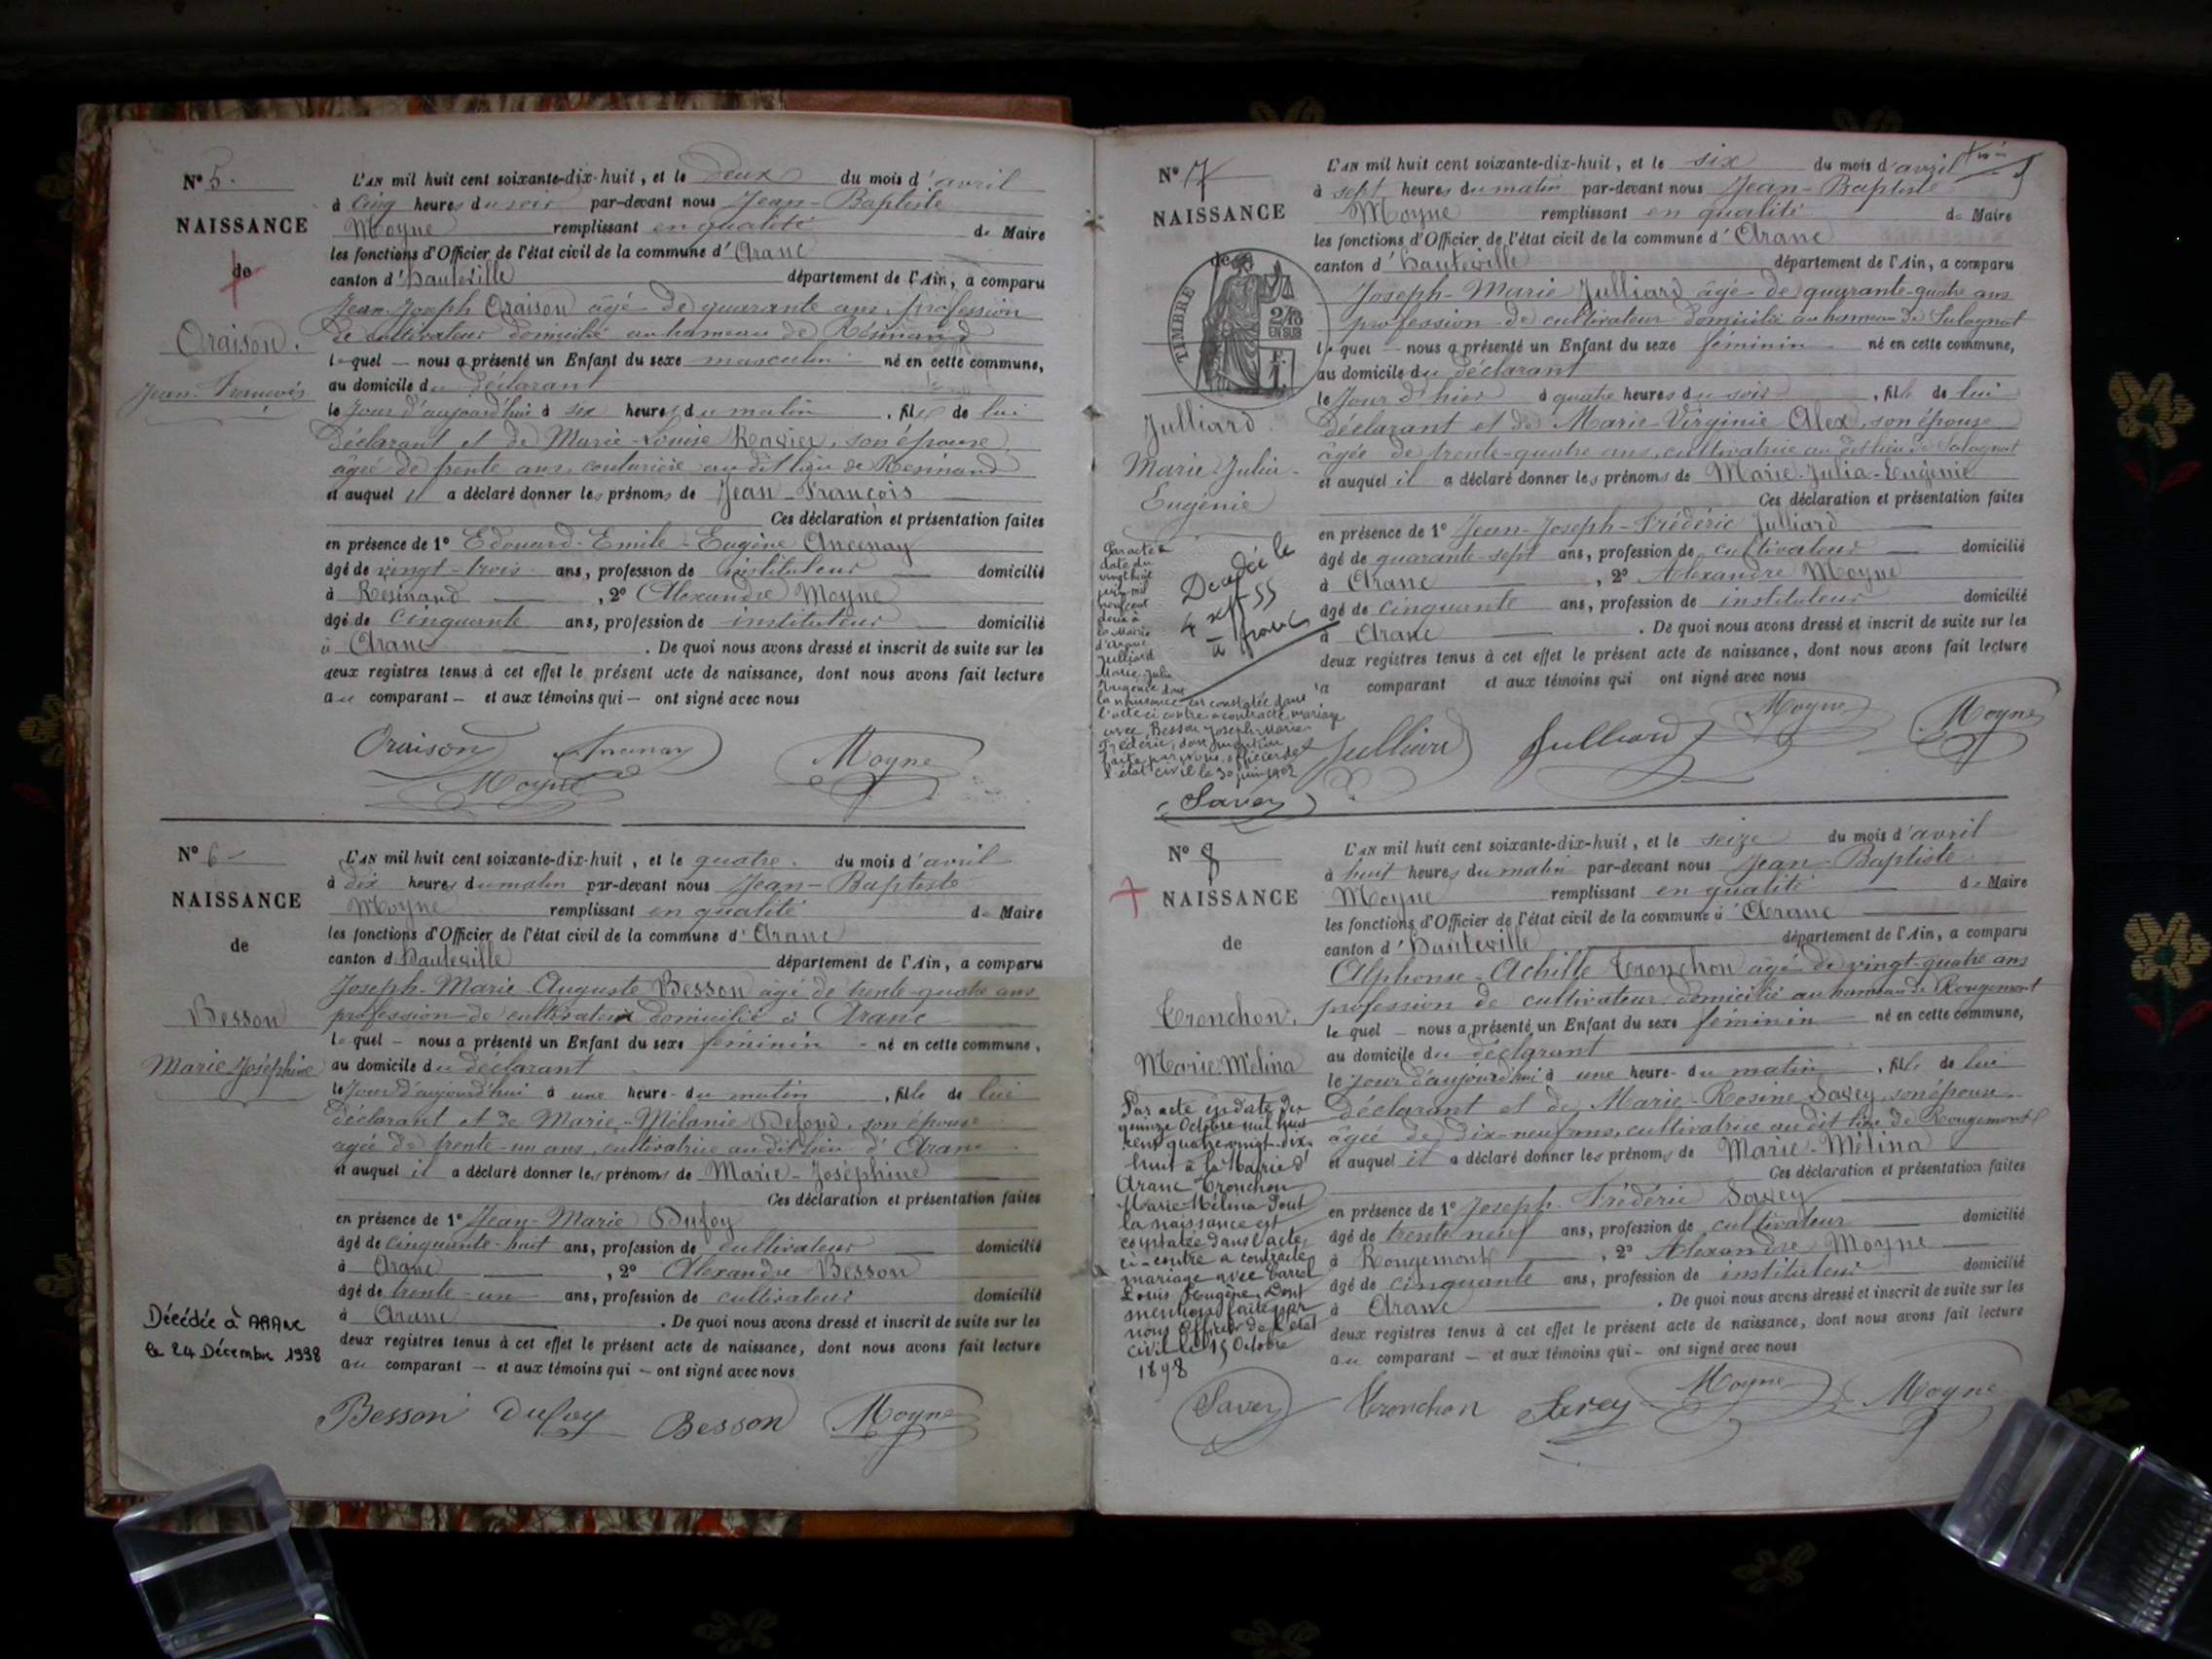 N° 5.
NAISSANCE
de
Oraison.
Jean-François
L'AN mil huit cent soixante-dix-huit, et le deux du mois d'avril
à cinq heures du soir par-devant nous Jean-Baptiste
Moyne remplissant en qualité de Maire
les fonctions d'Officier de l'état civil de la commune d'Aranc
canton d'hauteville département de l'Ain, a comparu
Jean-Joseph Oraison âgé de quarante ans, profession
de cultivateur domicilié au hameau de Résinand
lequel — nous a présenté un Enfant du sexe masculin né en cette commune,
au domicile du déclarant
le jour d'aujourd'hui à six heures du matin, fils de lui
déclarant et de Marie-Louise Ravier, son épouse
âgée de trente ans, couturière au dit lieu de Résinand
et auquel il a déclaré donner les prénoms de Jean-François
Ces déclaration et présentation faites
en présence de 1° Edouard-Emile-Eugène Ancenay
âgé de vingt-trois ans, profession de instituteur domicilié
à Résinand, 2° Alexandre Moyne
âgé de cinquante ans, profession de instituteur domicilié
à Aranc. De quoi nous avons dressé et inscrit de suite sur les
deux registres tenus à cet effet le présent acte de naissance, dont nous avons fait lecture
au comparant — et aux témoins qui — ont signé avec nous
Oraison Ancenay Moyne
Moyne
N° 6
NAISSANCE
de
Besson
Marie-Joséphine
Décédée à ARANC
le 24 Décembre 1938
L'AN mil huit cent soixante-dix-huit, et le quatre. du mois d'avril
à dix heures du matin par-devant nous Jean-Baptiste
Moyne remplissant en qualité de Maire
les fonctions d'Officier de l'état civil de la commune d'Aranc
canton d'hauteville département de l'Ain, a comparu
Joseph-Marie-Auguste Besson âgé de trente-quatre ans
profession de cultivateur domicilié à Aranc
lequel — nous a présenté un Enfant du sexe féminin — né en cette commune,
au domicile du déclarant
le jour d'aujourd'hui à une heure du matin, fille de lui
déclarant et de Marie-Mélanie son épouse
âgée de trente-un ans, cultivatrice au dit lieu d'Aranc
et auquel il a déclaré donner les prénoms de Marie-Joséphine
Ces déclaration et présentation faites
en présence de 1° Jean-Marie Dufoy
âgé de cinquante-huit ans, profession de cultivateur domicilié
à Aranc, 2° Alexandre Besson
âgé de trente-un ans, profession de cultivateur domicilié
à Aranc. De quoi nous avons dressé et inscrit de suite sur les
deux registres tenus à cet effet le présent acte de naissance, dont nous avons fait lecture
au comparant — et aux témoins qui — ont signé avec nous
Besson Dufoy Besson Moyne
N° 7
NAISSANCE
de
TIMBRE
2/10
EN SUS
Julliard
Marie-Julia-
Eugénie
Décédée le
4 sept 55
à Aranc
Par acte en
date du
vingt huit
juin mil
neuf cent
deux à
la Mairie
d'Aranc
Julliard
Marie-Julia
Eugénie dont
la naissance est constatée dans
l'acte ci contre a contracté mariage
avec Besson Joseph-Marie-
Frédéric, dont mention
faite par nous officier de
l'état civil le 30 juin 1902
Savey
L'AN mil huit cent soixante-dix-huit, et le six du mois d'avril
à sept heures du matin par-devant nous Jean-Baptiste
Moyne remplissant en qualité de Maire
les fonctions d'Officier de l'état civil de la commune d'Aranc
canton d'hauteville département de l'Ain, a comparu
Joseph-Marie Julliard âgé de quarante-quatre ans
profession de cultivateur domicilié au hameau de
lequel — nous a présenté un Enfant du sexe féminin né en cette commune,
au domicile du déclarant
le jour d'hier à quatre heures du soir, fille de lui
déclarant et de Marie-Virginie Alex, son épouse
âgée de trente-quatre ans, cultivatrice au dit lieu de
et auquel il a déclaré donner les prénoms de Marie-Julia-Eugénie
Ces déclaration et présentation faites
en présence de 1° Jean-Joseph-Frédéric Julliard
âgé de quarante-sept ans, profession de cultivateur domicilié
à Aranc, 2° Alexandre Moyne
âgé de cinquante ans, profession de instituteur domicilié
à Aranc. De quoi nous avons dressé et inscrit de suite sur les
deux registres tenus à cet effet le présent acte de naissance, dont nous avons fait lecture
a comparant et aux témoins qui ont signé avec nous
Julliard Julliard Moyne Moyne
N° 8
NAISSANCE
de
Tronchon.
Marie-Mélina
Par acte en date du
quinze Octobre mil huit
cent quatre-vingt-dix-
huit à la Mairie d'
Aranc Tronchon
Marie-Mélina dont
la naissance est
constatée dans l'acte
ci-contre a contracté
mariage avec
Louis Eugène, dont
mention faite par
nous officier de l'état
civil le 15 Octobre
1898
Savey
L'AN mil huit cent soixante-dix-huit, et le seize du mois d'avril
à huit heures du matin par-devant nous Jean-Baptiste
Moyne remplissant en qualité de Maire
les fonctions d'Officier de l'état civil de la commune d'Aranc
canton d'hauteville département de l'Ain, a comparu
Alphonse-Achille Tronchon âgé de vingt-quatre ans
profession de cultivateur domicilié au hameau de Rougemont
lequel — nous a présenté un Enfant du sexe féminin né en cette commune,
au domicile du déclarant
le jour d'aujourd'hui à une heure du matin, fille de lui
déclarant et de Marie-Rosine Savey, son épouse,
âgée de dix-neuf ans, cultivatrice au dit lieu de Rougemont
et auquel il a déclaré donner les prénoms de Marie-Mélina
Ces déclaration et présentation faites
en présence de 1° Joseph-Frédéric Savey
âgé de trente neuf ans, profession de cultivateur domicilié
à Rougemont, 2° Alexandre Moyne
âgé de cinquante ans, profession de instituteur domicilié
à Aranc. De quoi nous avons dressé et inscrit de suite sur les
deux registres tenus à cet effet le présent acte de naissance, dont nous avons fait lecture
au comparant — et aux témoins qui — ont signé avec nous
Tronchon Savey Moyne Moyne